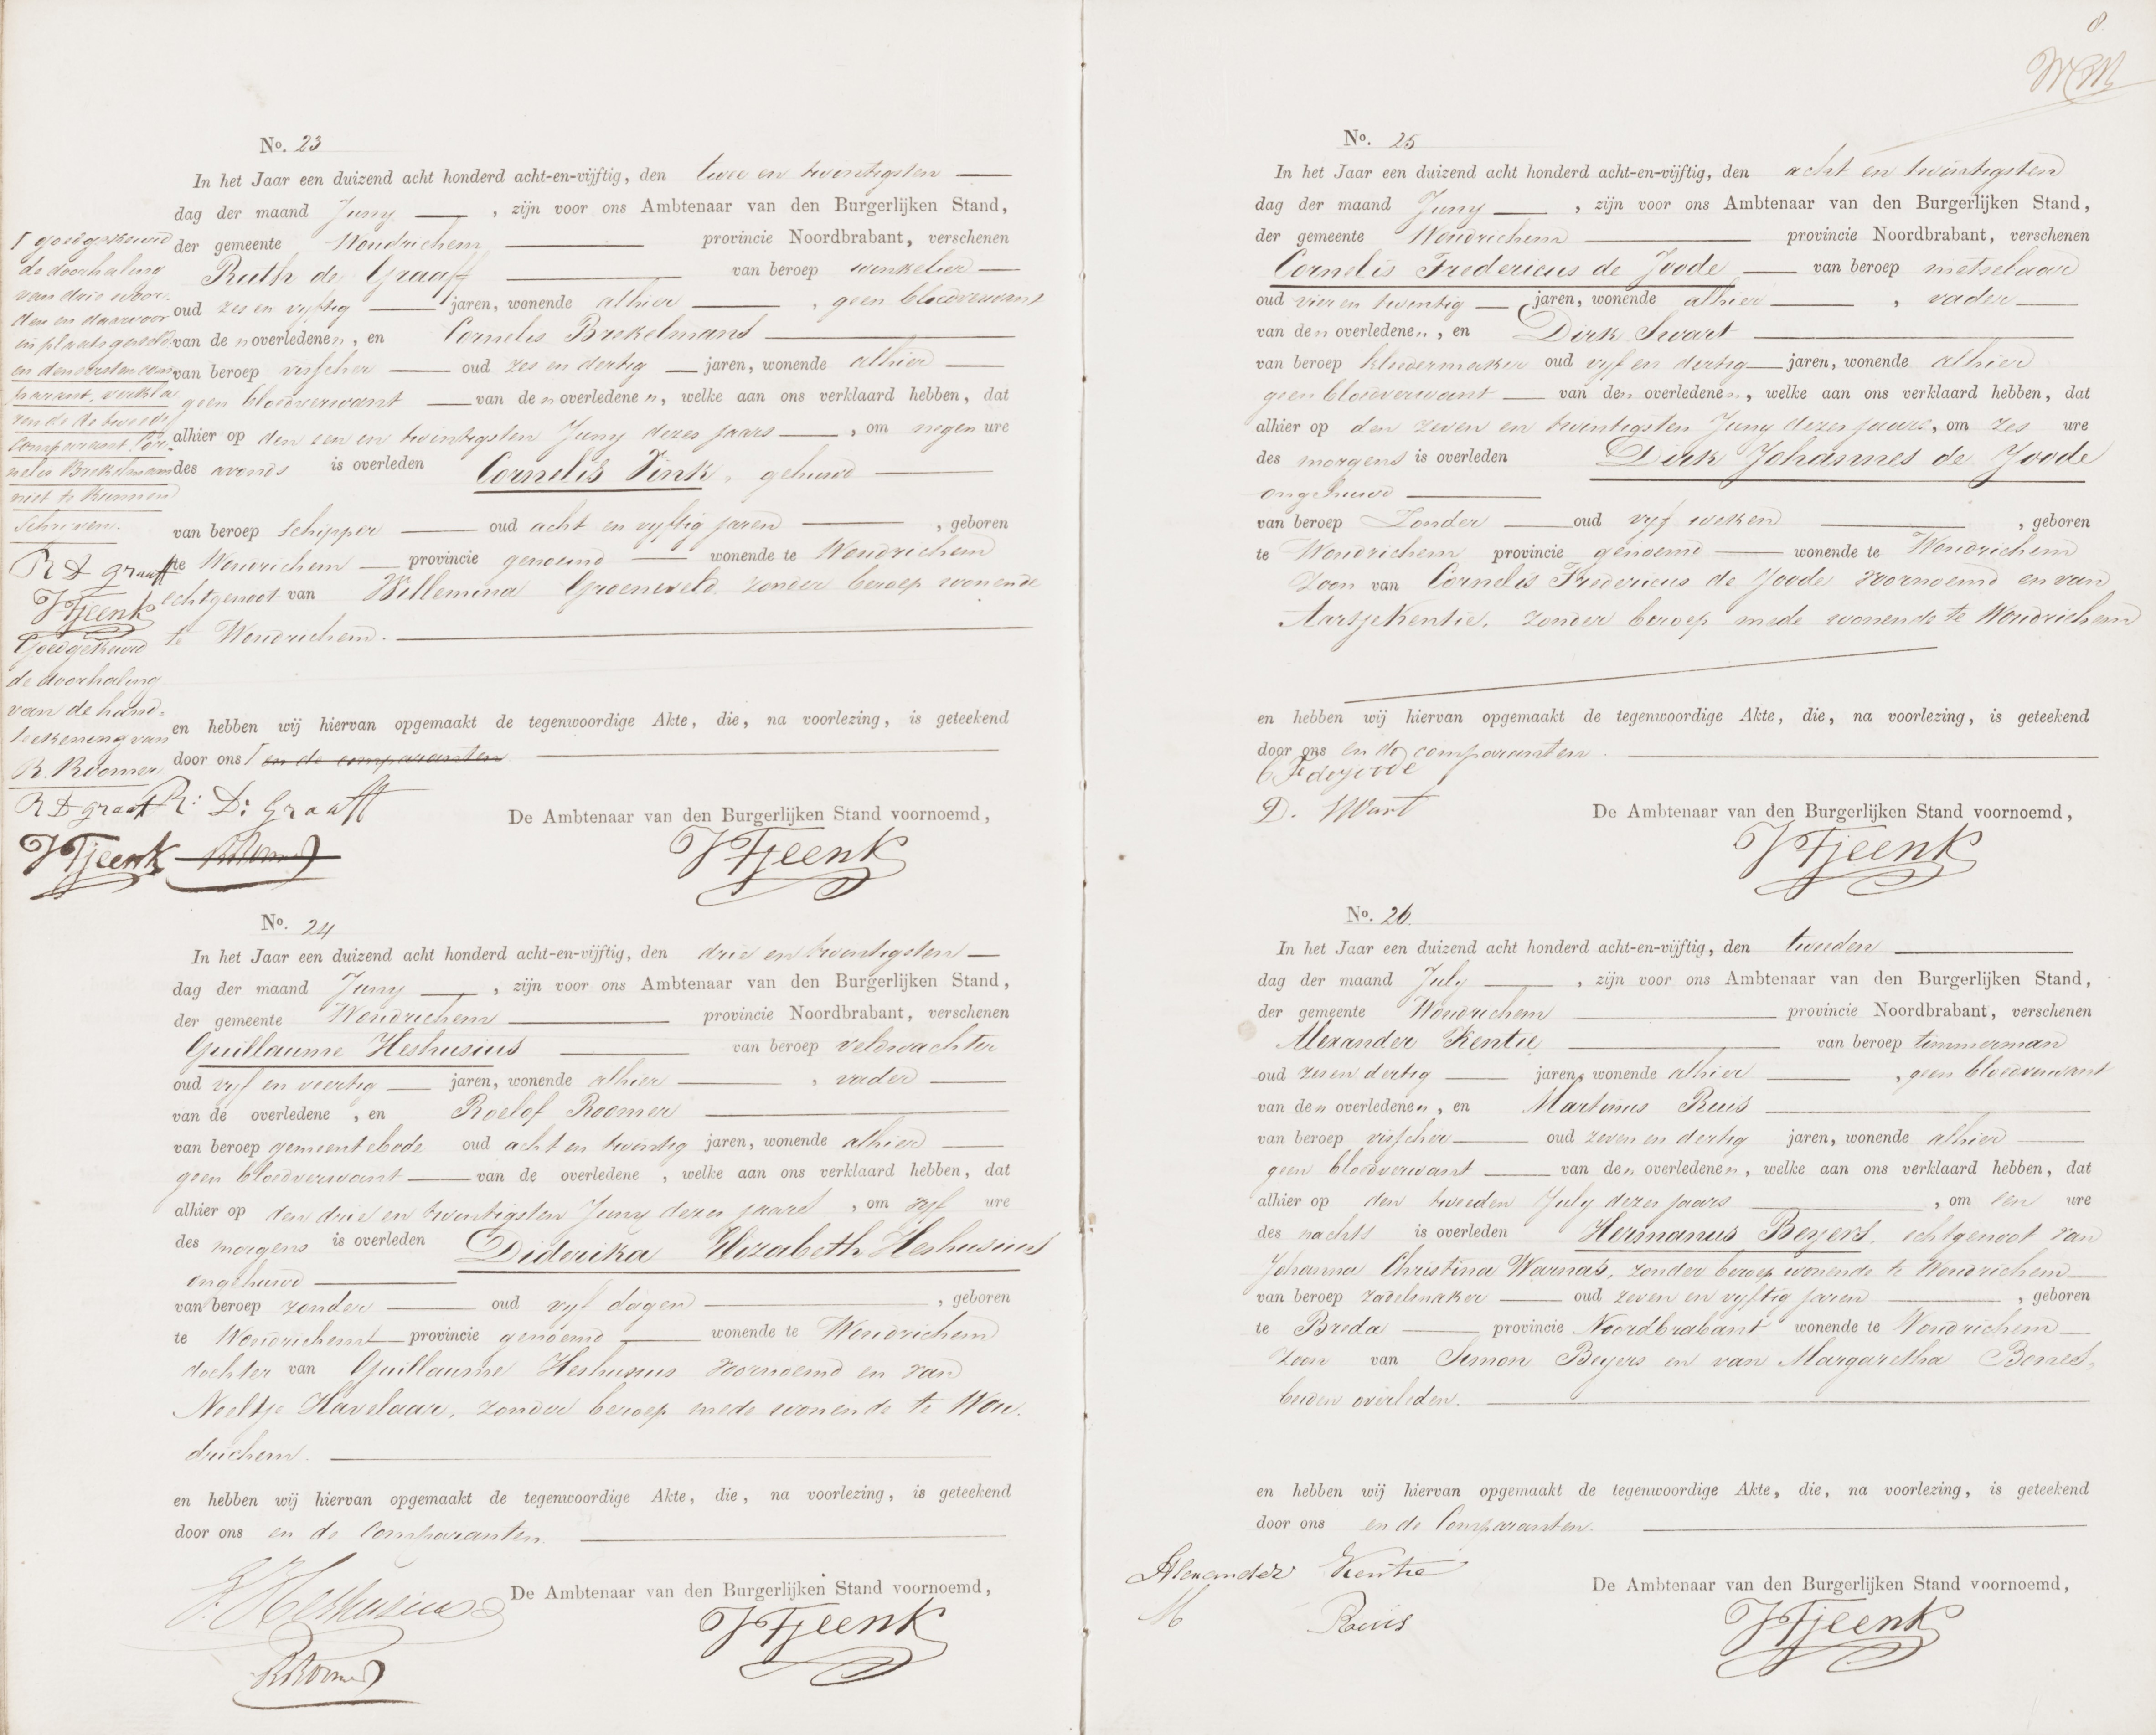 No. 23
In het Jaar een duizend acht honderd acht-en-vijftig, den twee en twintigsten
dag der maand Juny, zijn voor ons Ambtenaar van den Burgerlijken Stand,
der gemeente Woudrichem provincie Noordbrabant, verschenen
Ruth de Graaff van beroep winkelier
oud zes en vyftig jaren, wonende alhier, geen bloedverwant
van den overledenen, en Cornelis Brekelmans
van beroep visscher oud zes en dertig jaren, wonende alhier
geen bloedverwant van den overledenen, welke aan ons verklaard hebben, dat
alhier op den een en twintigsten Juny dezes jaars, om negen ure
des avonds is overleden Cornelis Vink, gehuwd
van beroep schipper oud acht en vyftig jaren, geboren
te Woudrichem provincie genoemd wonende te Woudrichem
echtgenoot van Willemina Groeneveld zonder beroep wonende
te Woudrichem.
en hebben wij hiervan opgemaakt de tegenwoordige Akte, die, na voorlezing, is geteekend
door ons en de comparanten
R: D: Graaff
De Ambtenaar van den Burgerlijken Stand voornoemd,
RRoomer
JTjeenk
goedgekeurd
de doorhaling
van drie woor-
den en daarvoor
in plaats gesteld
en den eersten com-
parant, verkla-
rende de tweede
Comparant Cor-
nelis Brekelmans
niet te kunnen
schrijven.
R D graaff
JTjeenk
Goedgekeurd
de doorhaling
van de hand-
teekening van
R. Roomer
R D graaff
JTjeenk
No. 24
In het Jaar een duizend acht honderd acht-en-vijftig, den drie en twentigsten
dag der maand Juny, zijn voor ons Ambtenaar van den Burgerlijken Stand,
der gemeente Woudrichem provincie Noordbrabant, verschenen
Guillaume Heshusius van beroep veldwachter
oud vyf en veertig jaren, wonende alhier, vader
van de overledene, en Roelof Roomer
van beroep gemeentebode oud acht en twintig jaren, wonende alhier
geen bloedverwant van de overledene, welke aan ons verklaard hebben, dat
alhier op den drie en twentigsten Juny dezes jaars, om vyf ure
des morgens is overleden Diderika Elizabeth Heshusius
ongehuwd
van beroep zonder oud vyf dagen, geboren
te Woudrichem provincie genoemd wonende te Woudrichem
dochter van Guillaume Heshusius voornoemd en van
Neeltje Havelaar, zonder beroep mede wonende te Wou-
drichem.
en hebben wij hiervan opgemaakt de tegenwoordige Akte, die, na voorlezing, is geteekend
door ons en de Comparanten.
G. Heshusius
De Ambtenaar van den Burgerlijken Stand voornoemd,
RRoomer
JTjeenk
8
No. 25
In het Jaar een duizend acht honderd acht-en-vijftig, den acht en twintigsten
dag der maand Juny, zijn voor ons Ambtenaar van den Burgerlijken Stand,
der gemeente Woudrichem provincie Noordbrabant, verschenen
Cornelis Fredericus de Joode van beroep metselaar
oud vier en twentig jaren, wonende alhier, vader
van den overledenen, en Dirk Swart
van beroep kleedermaker oud vyf en dertig jaren, wonende alhier
geen bloedverwant van den overledenen, welke aan ons verklaard hebben, dat
alhier op den zeven en twintigsten Juny dezes jaars, om zes ure
des morgens is overleden Dirk Johannes de Joode
ongehuwd
van beroep Zonder oud vyf weken, geboren
te Woudrichem provincie genoemd wonende te Woudrichem
Zoon van Cornelis Fredericus de Joode voornoemd en van
Aartje Kentie, zonder beroep mede wonende te Woudrichem
en hebben wij hiervan opgemaakt de tegenwoordige Akte, die, na voorlezing, is geteekend
door ons en de comparanten.
C F de joode
D. Swart
De Ambtenaar van den Burgerlijken Stand voornoemd,
JTjeenk
No. 26.
In het Jaar een duizend acht honderd acht-en-vijftig, den tweeden
dag der maand July, zijn voor ons Ambtenaar van den Burgerlijken Stand,
der gemeente Woudrichem provincie Noordbrabant, verschenen
Alexander Kentie van beroep timmerman
oud zes en dertig jaren, wonende alhier, geen bloedverwant
van den overledenen, en Martinus Ruis
van beroep visscher oud zeven en dertig jaren, wonende alhier
geen bloedverwant van den overledenen, welke aan ons verklaard hebben, dat
alhier op den tweeden July dezes jaars, om een ure
des nachts is overleden Hermanus Beyers, echtgenoot van
Johanna Christina Warnas, zonder beroep wonende te Woudrichem
van beroep zadelmaker oud zeven en vyftig jaren, geboren
te Breda provincie Noordbrabant wonende te Woudrichem
Zoon van Simon Beyers en van Margaretha
beiden overleden.
en hebben wij hiervan opgemaakt de tegenwoordige Akte, die, na voorlezing, is geteekend
door ons en de Comparanten.
Alexander Kentie
De Ambtenaar van den Burgerlijken Stand voornoemd,
M Ruis
JTjeenk